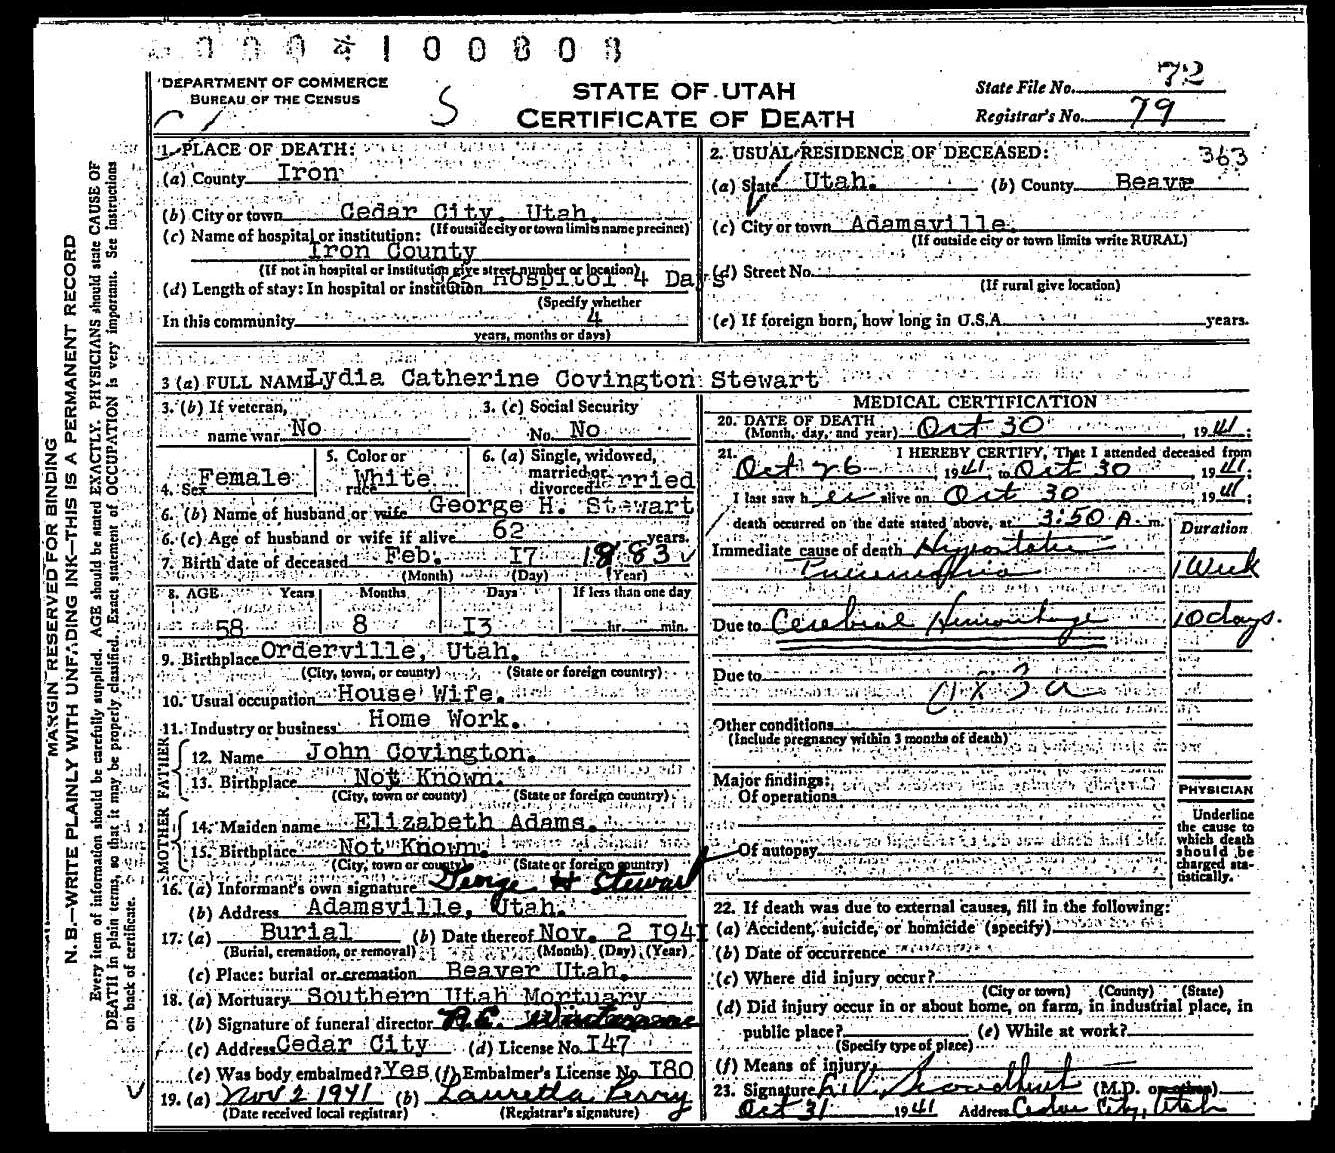 000*100808
DEPARTMENT OF COMMERCE
BUREAU OF THE CENSUS
S
STATE OF UTAH
CERTIFICATE OF DEATH
State File No. 72
Registrar's No. 79
1. PLACE OF DEATH:
(a) County Iron
(b) City or town Cedar City, Utah.
(If outside city or town limits name precinct)
(c) Name of hospital or institution:
Iron County
(If not in hospital or institution give street number or location)
(d) Length of stay: In hospital or institution Hospitol 4 Days
(Specify whether
In this community 4
years, months or days)
2. USUAL RESIDENCE OF DECEASED: 363
(a) State Utah. (b) County Beave
(c) City or town Adamsville.
(If outside city or town limits write RURAL)
(d) Street No.
(If rural give location)
(e) If foreign born, how long in U.S.A. years.
3 (a) FULL NAME Lydia Catherine Covington Stewart
3. (b) If veteran, name war No
3. (c) Social Security No. No
4. Sex Female
5. Color or race White
6. (a) Single, widowed, married or divorced Married
6. (b) Name of husband or wife George H. Stewart
6. (c) Age of husband or wife if alive 62 years.
7. Birth date of deceased Feb. I7 1883
(Month) (Day) (Year)
8. AGE Years Months Days If less than one day
58 8 I3 hr. min.
9. Birthplace Orderville, Utah.
(City, town, or county) (State or foreign country)
10. Usual occupation House Wife.
11. Industry or business Home Work.
FATHER
12. Name John Covington.
13. Birthplace Not Known.
(City, town or county) (State or foreign country)
MOTHER
14. Maiden name Elizabeth Adams.
15. Birthplace Not Known.
(City, town or county) (State or foreign country)
16. (a) Informant's own signature George H Stewart
(b) Address Adamsville, Utah.
17. (a) Burial (b) Date thereof Nov. 2 I94I
(Burial, cremation, or removal) (Month) (Day) (Year)
(c) Place: burial or cremation Beaver Utah.
18. (a) Mortuary Southern Utah Mortuary
(b) Signature of funeral director
(c) Address Cedar City (d) License No. I47
(e) Was body embalmed? Yes (f) Embalmer's License No. I80
19. (a) Nov 2 1941 (b) Lauretta Perry
(Date received local registrar) (Registrar's signature)
MEDICAL CERTIFICATION
20. DATE OF DEATH
(Month, day, and year) Oct 30, 1941;
21. I HEREBY CERTIFY, That I attended deceased from
Oct 26 1941, to Oct 30, 1941;
I last saw her alive on Oct 30, 1941;
death occurred on the date stated above, at 3:50 A. m.
Duration
Immediate cause of death Hypostatic
Pneumonia 1 Week
Due to Cerebral Hemorrhage 10 days.
Due to
083a
Other conditions
(Include pregnancy within 3 months of death)
Major findings:
Of operations
Of autopsy
PHYSICIAN
Underline
the cause to
which death
should be
charged sta-
tistically.
22. If death was due to external causes, fill in the following:
(a) Accident, suicide, or homicide (specify)
(b) Date of occurrence
(c) Where did injury occur?
(City or town) (County) (State)
(d) Did injury occur in or about home, on farm, in industrial place, in
public place? (e) While at work?
(Specify type of place)
(f) Means of injury
23. Signature (M.D. or other)
Oct 31 1941 Address Cedar City, Utah
MARGIN RESERVED FOR BINDING
N. B.—WRITE PLAINLY WITH UNFADING INK—THIS IS A PERMANENT RECORD
Every item of information should be carefully supplied. AGE should be stated EXACTLY. PHYSICIANS should state CAUSE OF
DEATH in plain terms, so that it may be properly classified. Exact statement of OCCUPATION is very important. See instructions
on back of certificate.